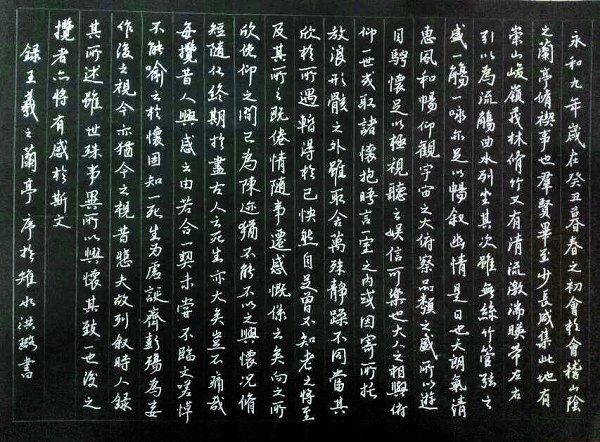 永和九年歲在癸丑暮春之初會於會稽山陰
之蘭亭脩禊事也群賢畢至少長咸集此地有
崇山峻嶺茂林脩竹又有清流激湍暎帶左右
引以為流觴曲水列坐其次雖無絲竹管弦之
盛一觴一詠亦足以暢敘幽情是日也天朗氣清
惠風和暢仰觀宇宙之大俯察品類之盛所以遊
目騁懷足以極視聽之娛信可樂也夫人之相與俯
仰一世或取諸懷抱晤言一室之內或因寄所托
放浪形骸之外雖取舍萬殊靜躁不同當其
欣於所遇暫得於己怏然自足曾不知老之將至
及其所之既倦情隨事遷感慨係之矣向之所
欣俛仰之間已為陳迹猶不能不以之興懷況脩
短隨化終期於盡古人云死生亦大矣豈不痛哉
每攬昔人興感之由若合一契未嘗不臨文嗟悼
不能喻之於懷固知一死生為虛誕齊彭殤為妄
作後之視今亦猶今之視昔悲夫故列敘時人錄
其所述雖世殊事異所以興懷其致一也後之
攬者亦將有感於斯文
録王羲之蘭亭序於雉水洪書